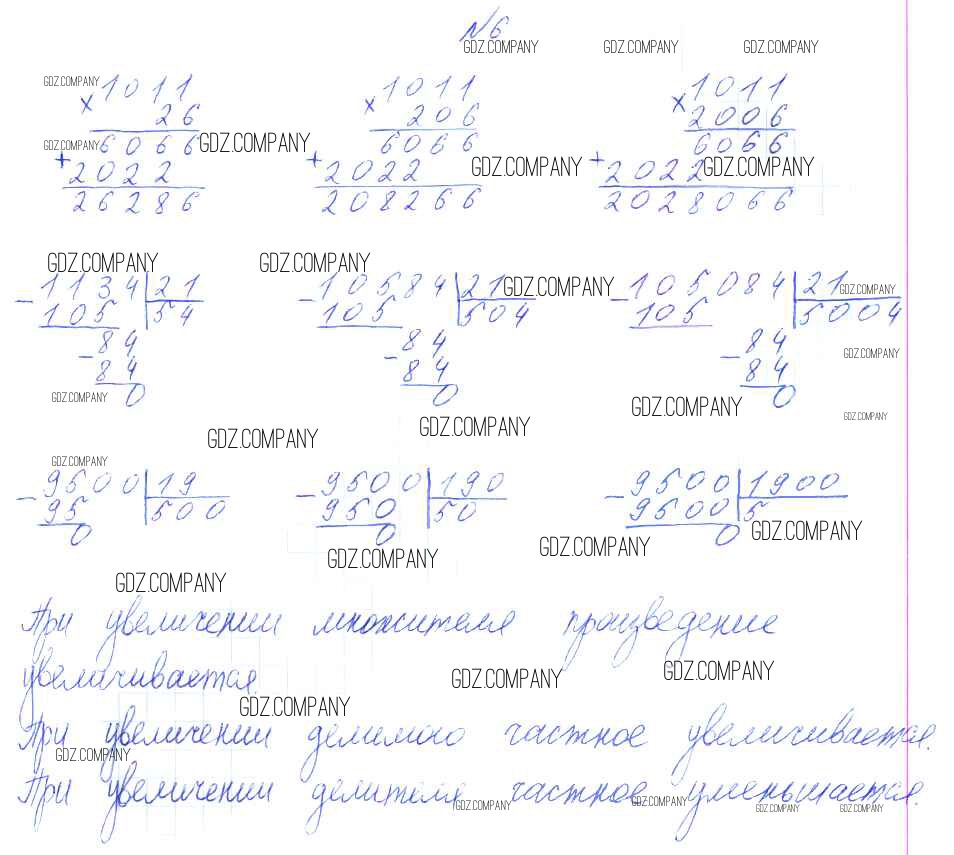 №6
GDZ.COMPANY GDZ.COMPANY GDZ.COMPANY
GDZ.COMPANY 1011 1011 1011
× 26 × 206 × 2006
GDZ.COMPANY 6066 GDZ.COMPANY 6066 6066
+ 2022 + 2022 GDZ.COMPANY + 2022 GDZ.COMPANY
26286 208266 2028066
GDZ.COMPANY GDZ.COMPANY
- 1134 21 - 10584 21 GDZ.COMPANY - 105084 21 GDZ.COMPANY
105 54 105 504 105 5004
- 84 - 84 - 84 GDZ.COMPANY
84 84 84
GDZ.COMPANY 0 0 GDZ.COMPANY 0
GDZ.COMPANY GDZ.COMPANY GDZ.COMPANY
GDZ.COMPANY
- 9500 19 - 9500 190 - 9500 1900
95 500 950 50 9500 5
0 0 0 GDZ.COMPANY
GDZ.COMPANY GDZ.COMPANY
GDZ.COMPANY
При увеличении множителя произведение
увеличивается.
GDZ.COMPANY GDZ.COMPANY
GDZ.COMPANY
При увеличении делимого частное увеличивается.
GDZ.COMPANY
При увеличении делителя частное уменьшается.
GDZ.COMPANY GDZ.COMPANY GDZ.COMPANY GDZ.COMPANY